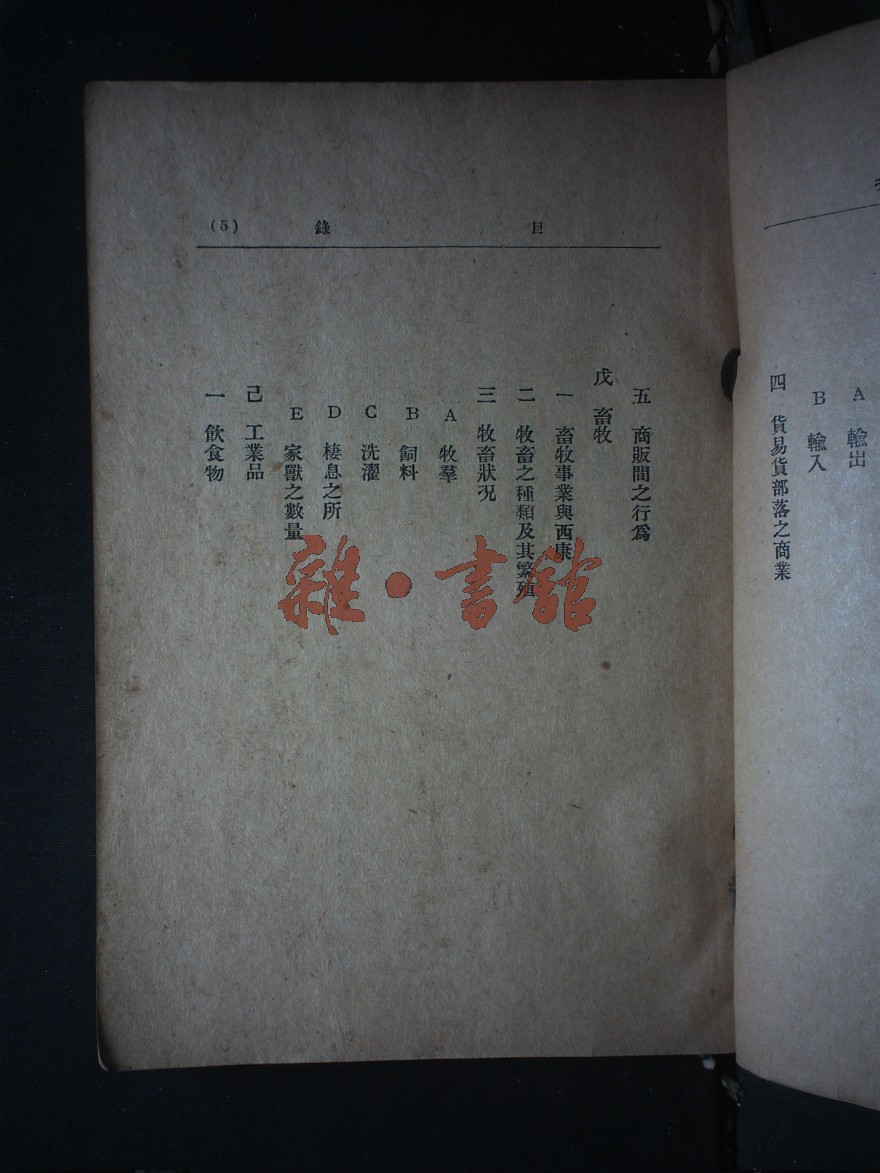 A 輸出
B 輸入
四 貨易貨部落之商業
目錄 (5)
五 商販間之行為
戊 畜牧
一 畜牧事業與西康
二 牧畜之種類及其繁殖
三 牧畜狀況
A 牧羣
B 飼料
C 洗濯
D 棲息之所
E 家獸之數量
己 工業品
一 飲食物
雜·書館